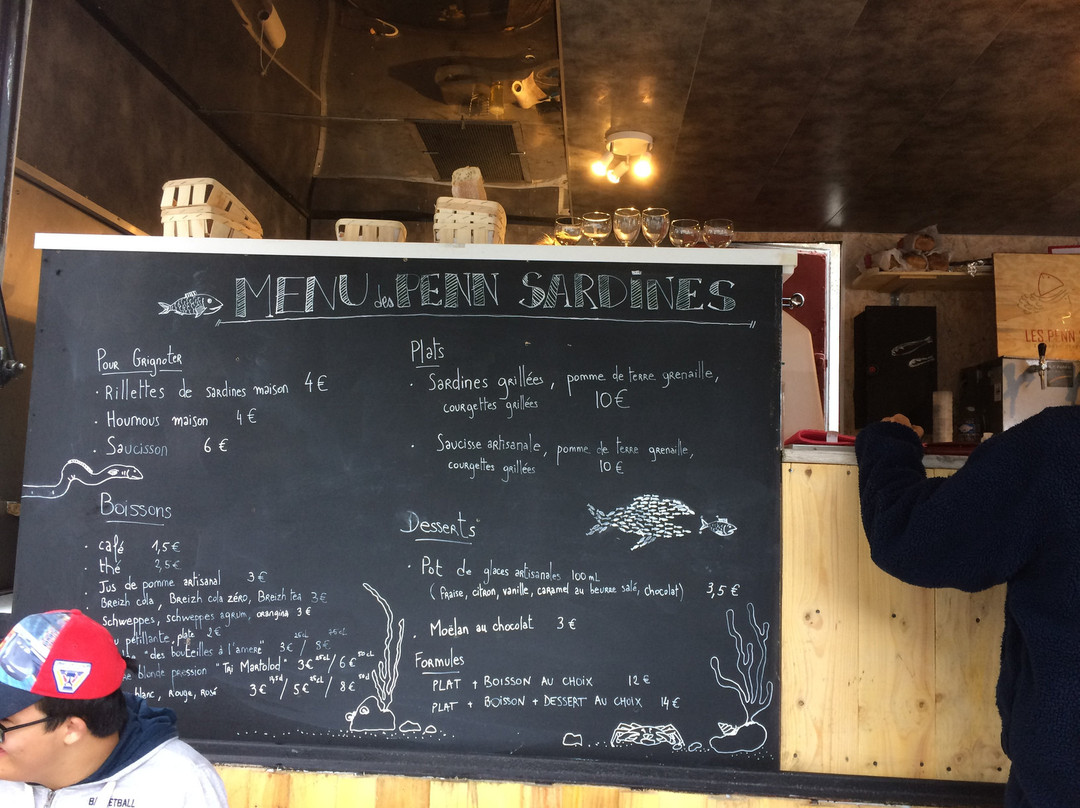 MENU des PENN SARDINES
Pour Grignoter
• Rillettes de sardines maison 4€
• Houmous maison 4€
• Saucisson 6€
Boissons
• café 1,5€
• thé 2,5€
Jus de pomme artisanal 3€
Breizh cola, Breizh cola zéro, Breizh tea 3€
Schweppes, schweppes agrum, orangina 3€
pétillante, plate 2€
"des bouteilles à l'amère" 3€ 25cl / 8€ 75cl
blonde pression "Tri Martolod" 3€ 25cl / 6€ 50cl
blanc, Rouge, Rosé 3€ / 5€ 25cl / 8€ 50cl
Plats
• Sardines grillées, pomme de terre grenaille,
courgettes grillées 10€
• Saucisse artisanale, pomme de terre grenaille,
courgettes grillées 10€
Desserts
• Pot de glaces artisanales 100mL
(fraise, citron, vanille, caramel au beurre salé, chocolat) 3,5€
• Moëlan au chocolat 3€
Formules
PLAT + BOISSON AU CHOIX 12€
PLAT + BOISSON + DESSERT AU CHOIX 14€
LES PENN